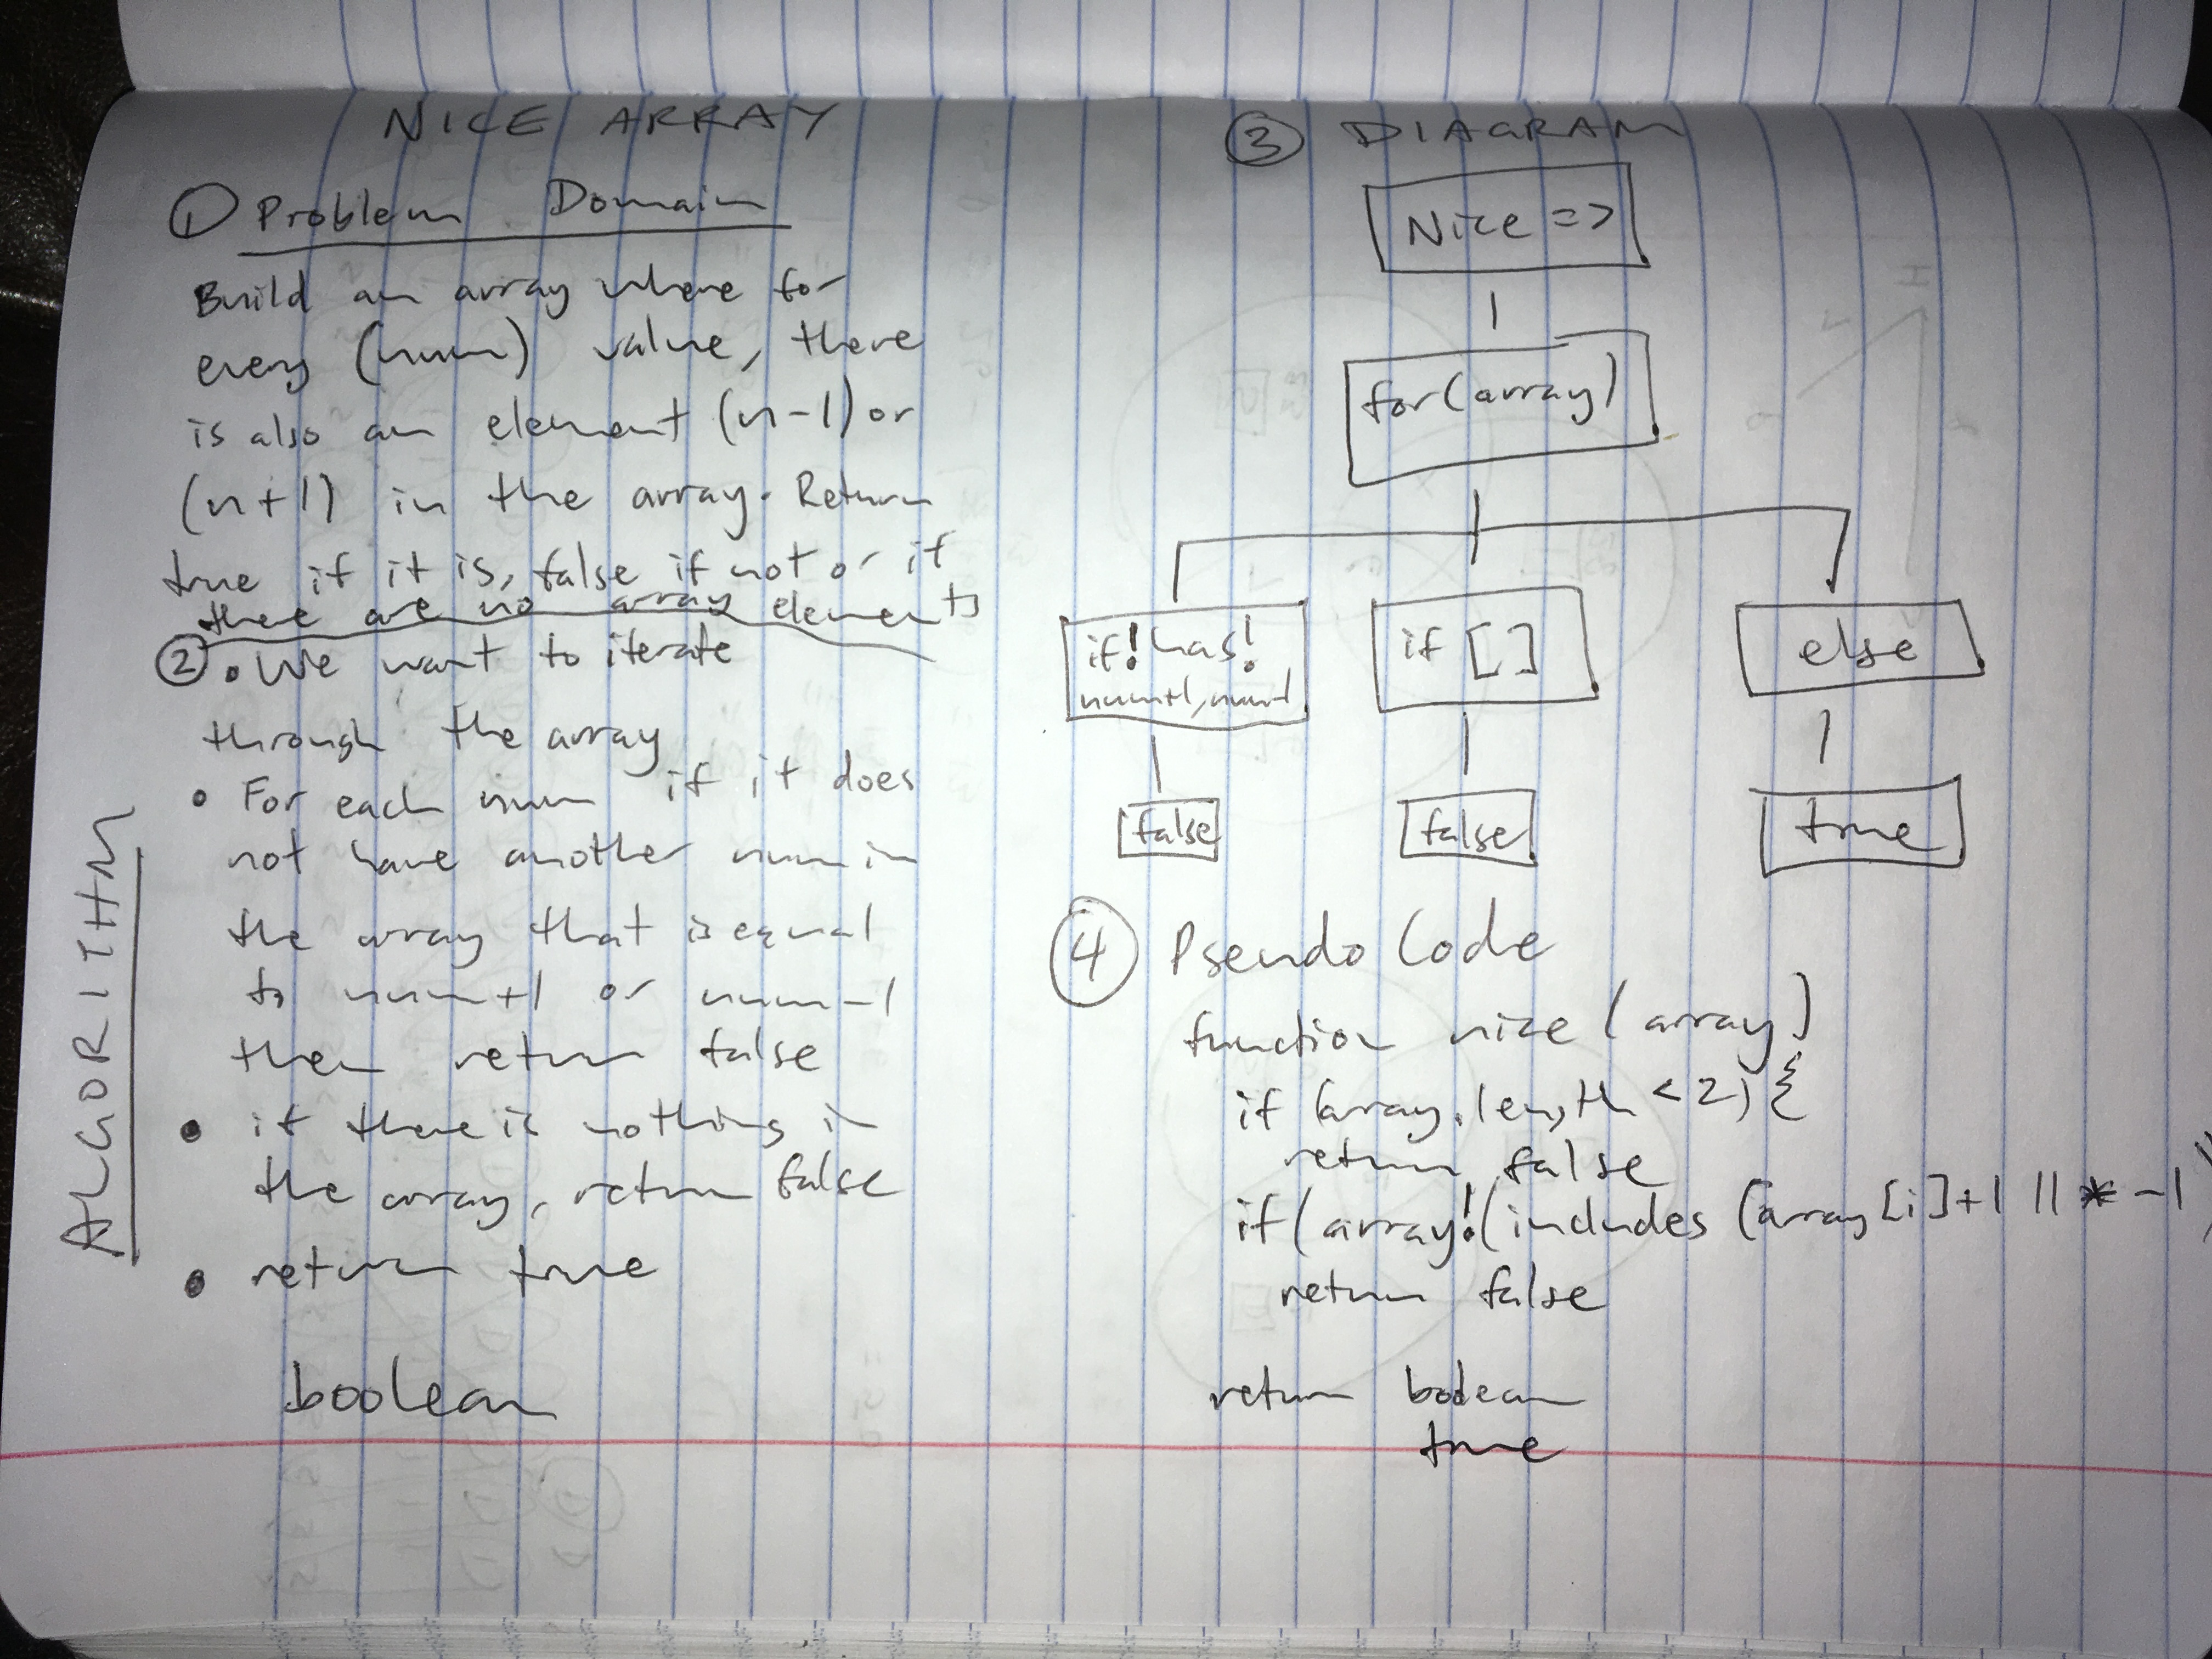 NICE ARRAY
① Problem Domain
Build an array where for
every (num) value, there
is also an element (n-1) or
(n+1) in the array. Return
true if it is, false if not or if
there are no array elements
ALGORITHM
② • We want to iterate
through the array
• For each num if it does
not have another num in
the array that is equal
to num+1 or num-1
then return false
• if there is nothing in
the array, return false
• return true
boolean
③ DIAGRAM
Nice =>
for(array)
if !has!
num+1, num-1
false
if []
false
else
true
④ Pseudo Code
function nice (array)
if (array.length < 2) {
return false
if (array!(includes (array[i]+1 || * -1
return false
return boolean
true